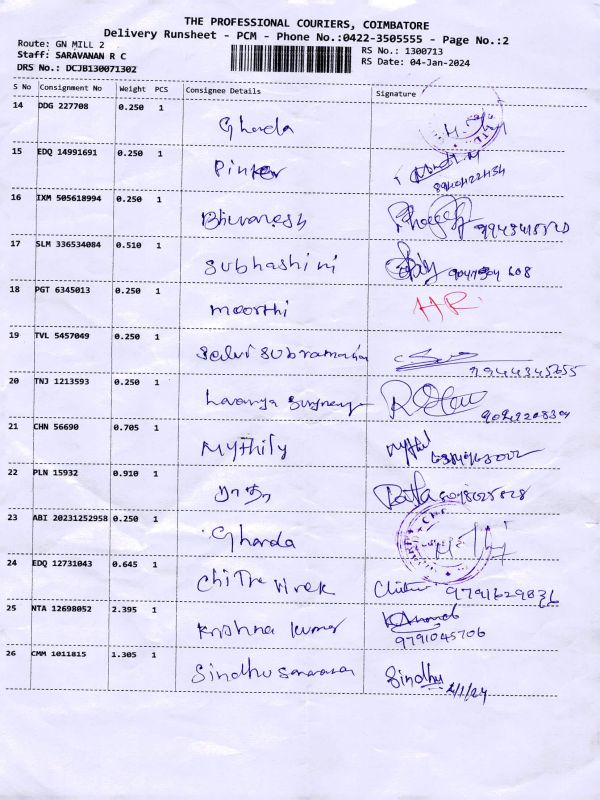 THE PROFESSIONAL COURIERS, COIMBATORE
Delivery Runsheet - PCM - Phone No.:0422-3505555 - Page No.:2
Route: GN MILL 2
Staff: SARAVANAN R C
DRS No.: DCJB130071302
RS No.: 1300713
RS Date: 04-Jan-2024
S No Consignment No Weight PCS Consignee Details Signature
14 DDG 227708 0.250 1
Gharda
15 EDQ 14991691 0.250 1
Pinter
16 IXM 505618994 0.250 1
Bhuvanesh
17 SLM 336534084 0.510 1
Subhashini
18 PGT 6345013 0.250 1
moorthi HR.
19 TVL 5457049 0.250 1
Selvi Subramaniam
9944345655
20 TNJ 1213593 0.250 1
Lavanya
21 CHN 56690 0.705 1
Mythily
22 PLN 15932 0.910 1
23 ABI 20231252958 0.250 1
Gharda
24 EDQ 12731043 0.645 1
Chitra Vivek 9791629836
25 NTA 12698052 2.395 1
Krishna Kumar
9791045706
26 CMM 1011815 1.305 1
Sindhu Saravanan Sindhu 4/1/24